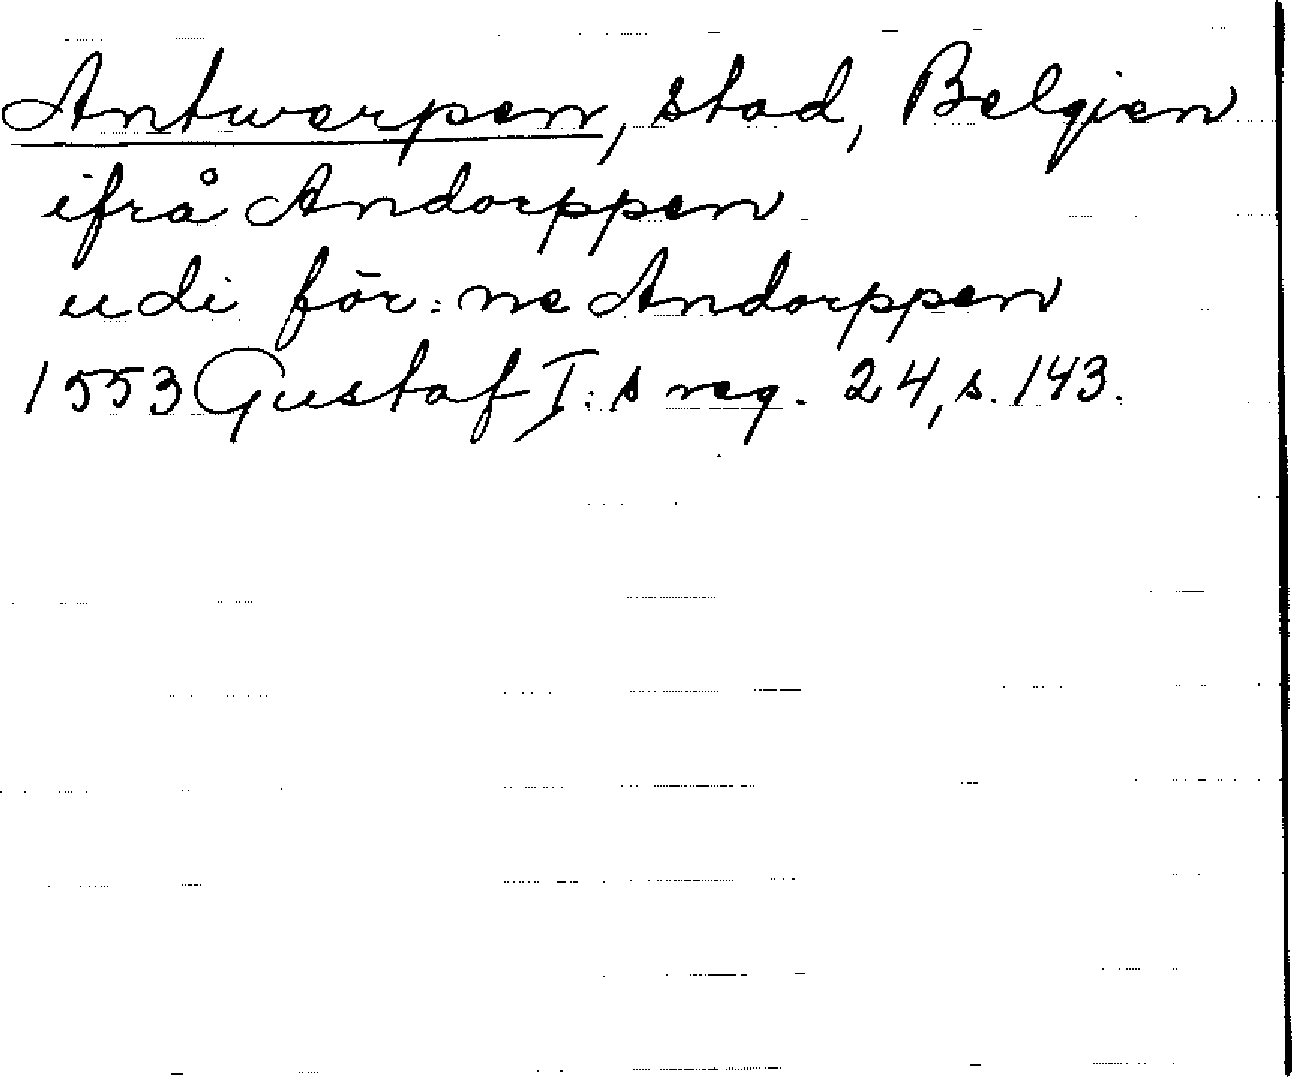 Antwerpen, stad, Belgien
ifrå Andorppen
udi för:ne Andorppen
1553 Gustaf I:s reg. 24, s. 143.